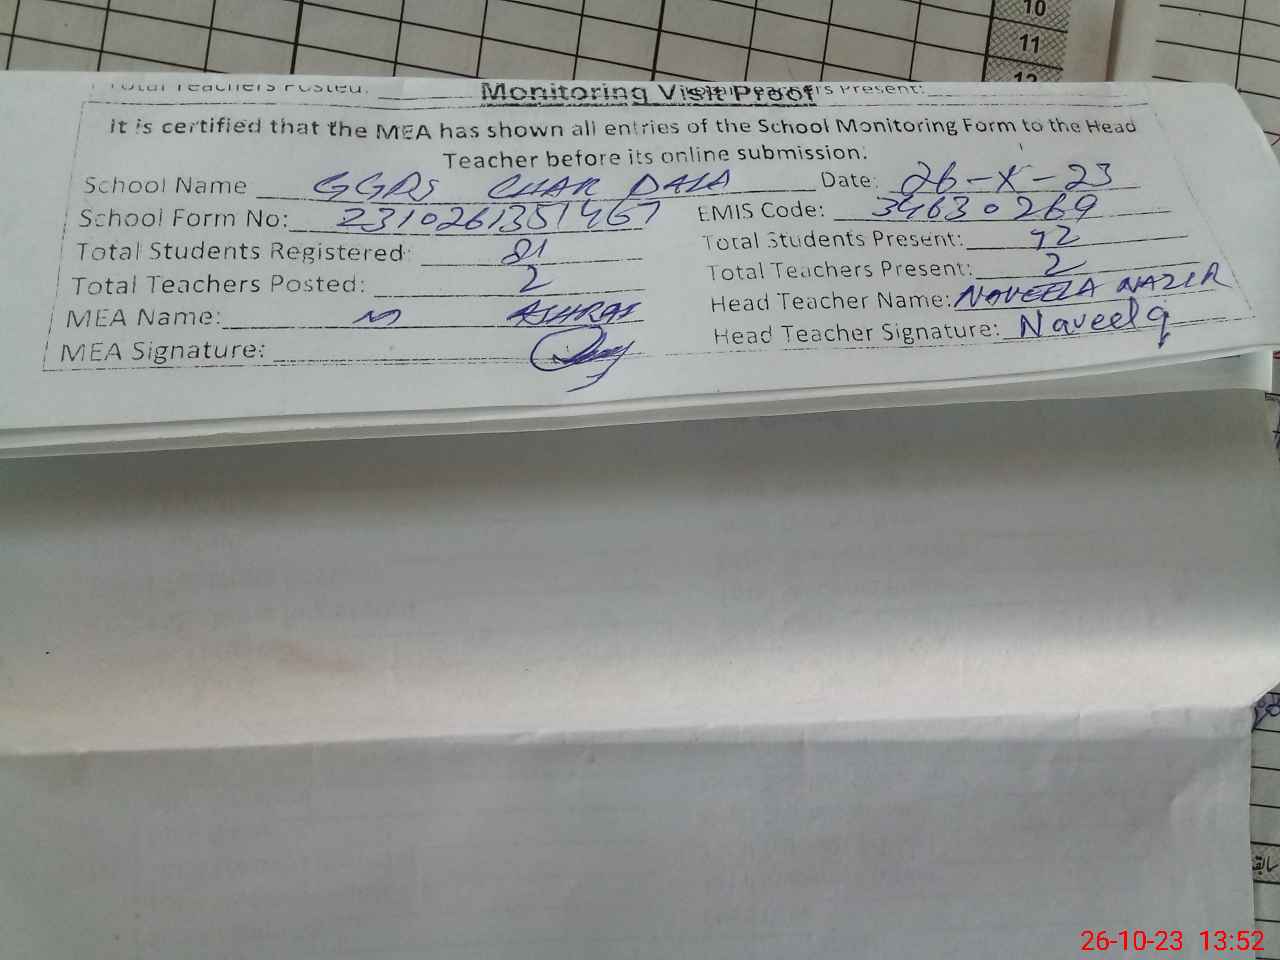 10
11
12
Total Teachers Posted: Teachers Present:
Monitoring Visit Proof
It is certified that the MEA has shown all entries of the School Monitoring Form to the Head
Teacher before its online submission.
School Name GGPS CHAR DATA Date: 26-X-23
School Form No: 2310261351467 EMIS Code: 34630269
Total Students Registered: 81 Total Students Present: 72
Total Teachers Posted: 2 Total Teachers Present: 2
MEA Name: M ASHRAF Head Teacher Name: NAVEELA NAZIR
MEA Signature: Head Teacher Signature: Naveela
26-10-23 13:52